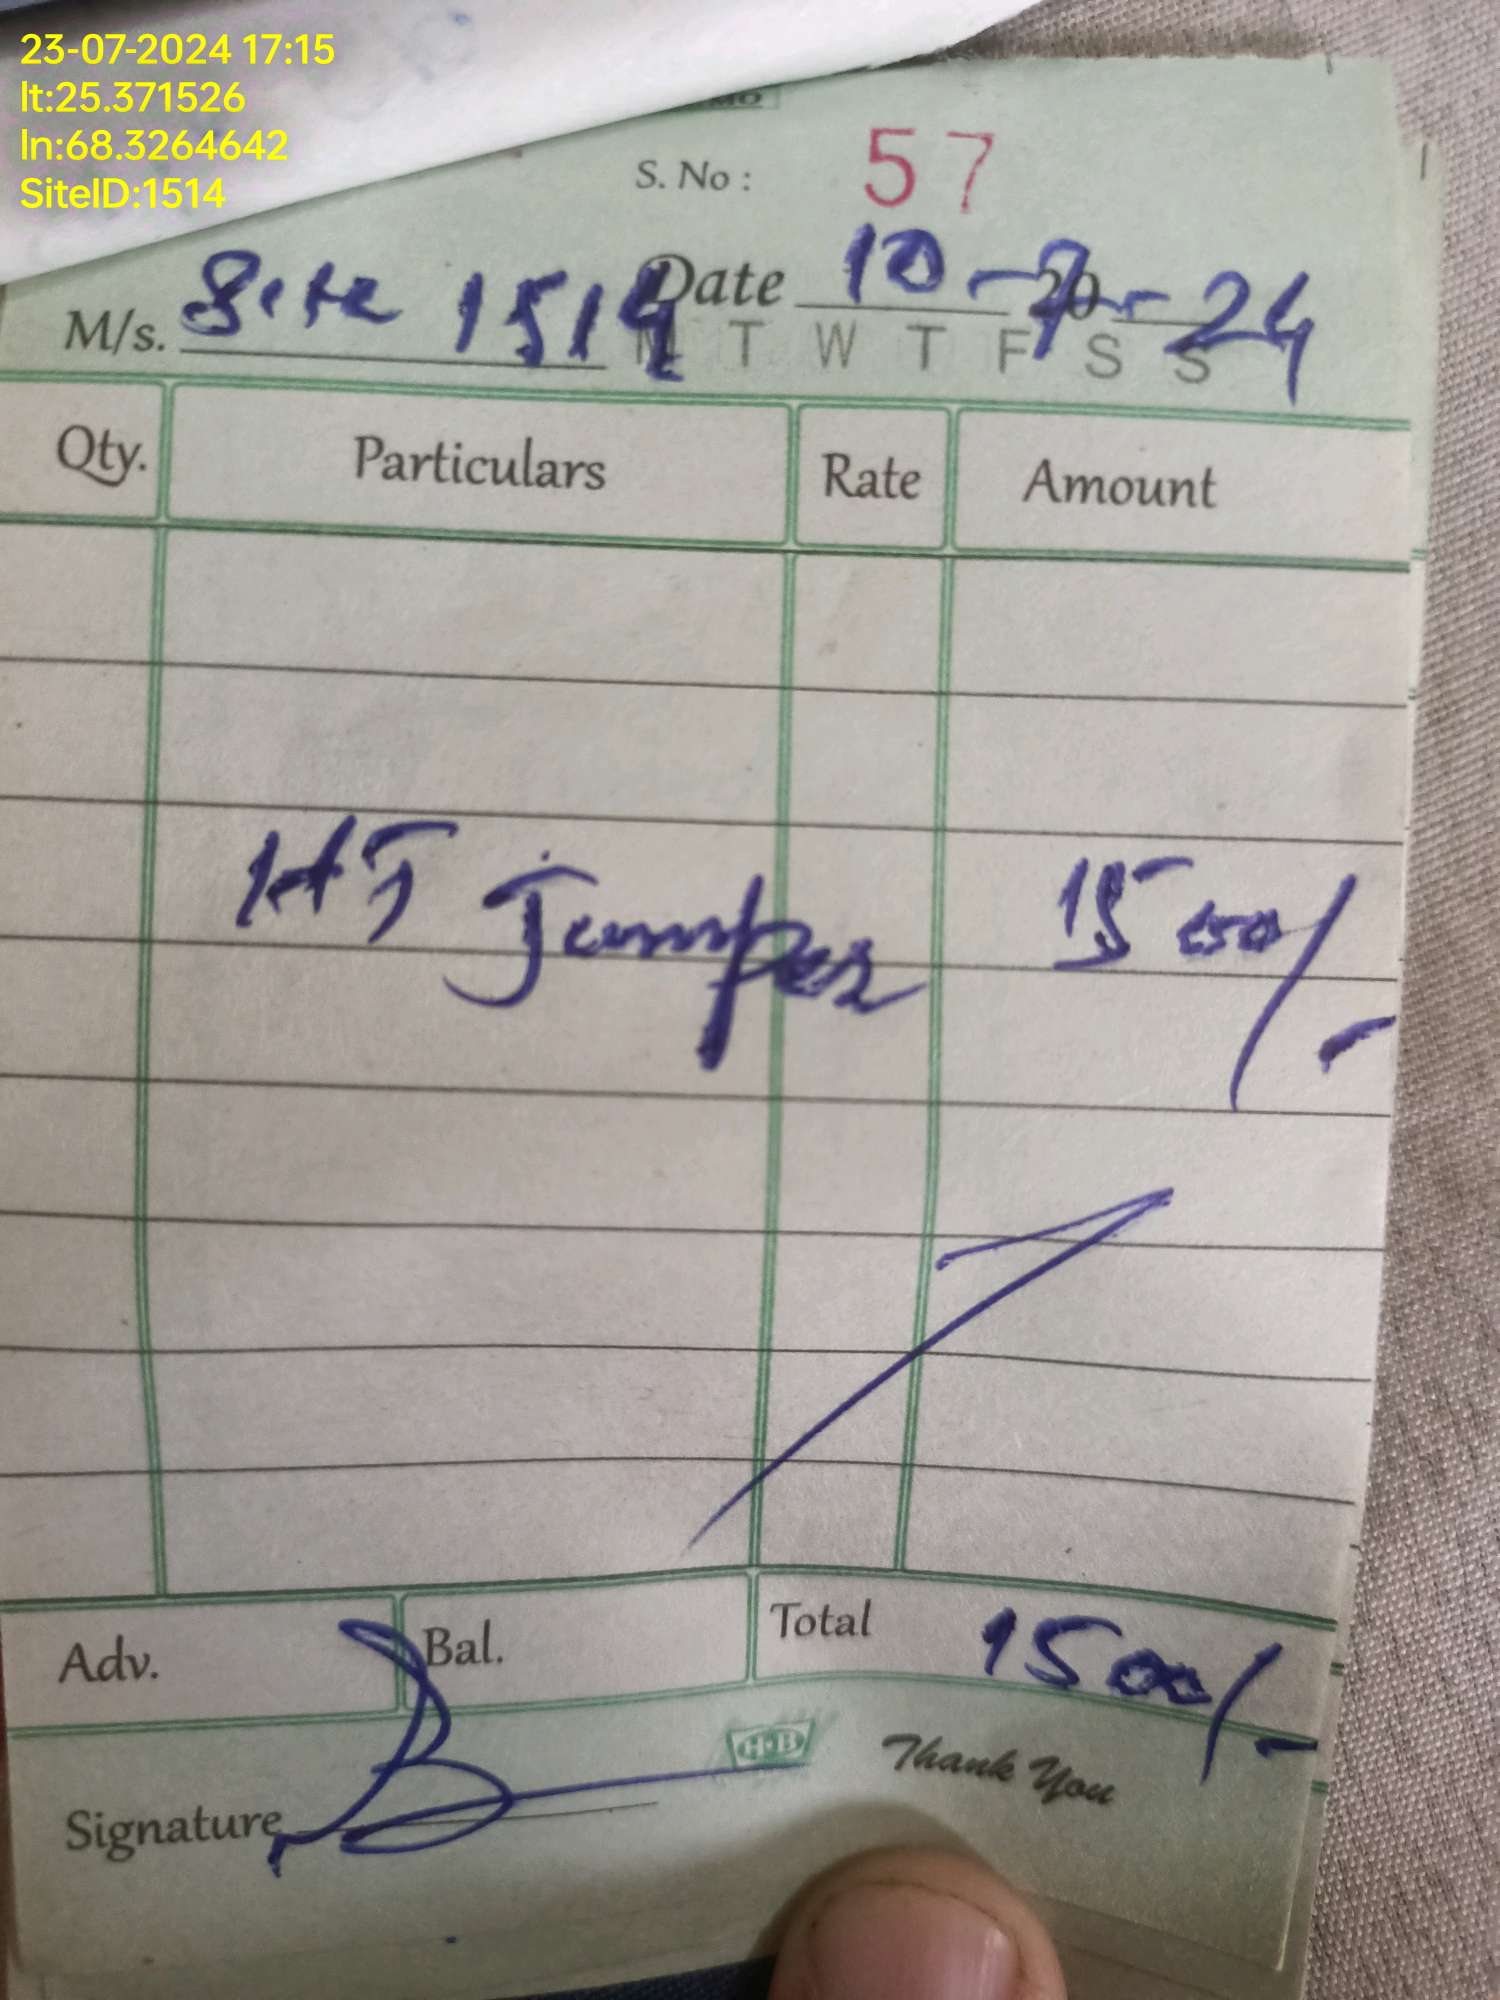 23-07-2024 17:15
lt:25.371526
ln:68.3264642
SiteID:1514
S. No : 57
Date 10-7-2024
M/s. Site 1514
M T W T F S S
Qty. Particulars Rate Amount
HT Jumper 1500/-
Adv. Bal. Total 1500/-
H·B Thank You
Signature